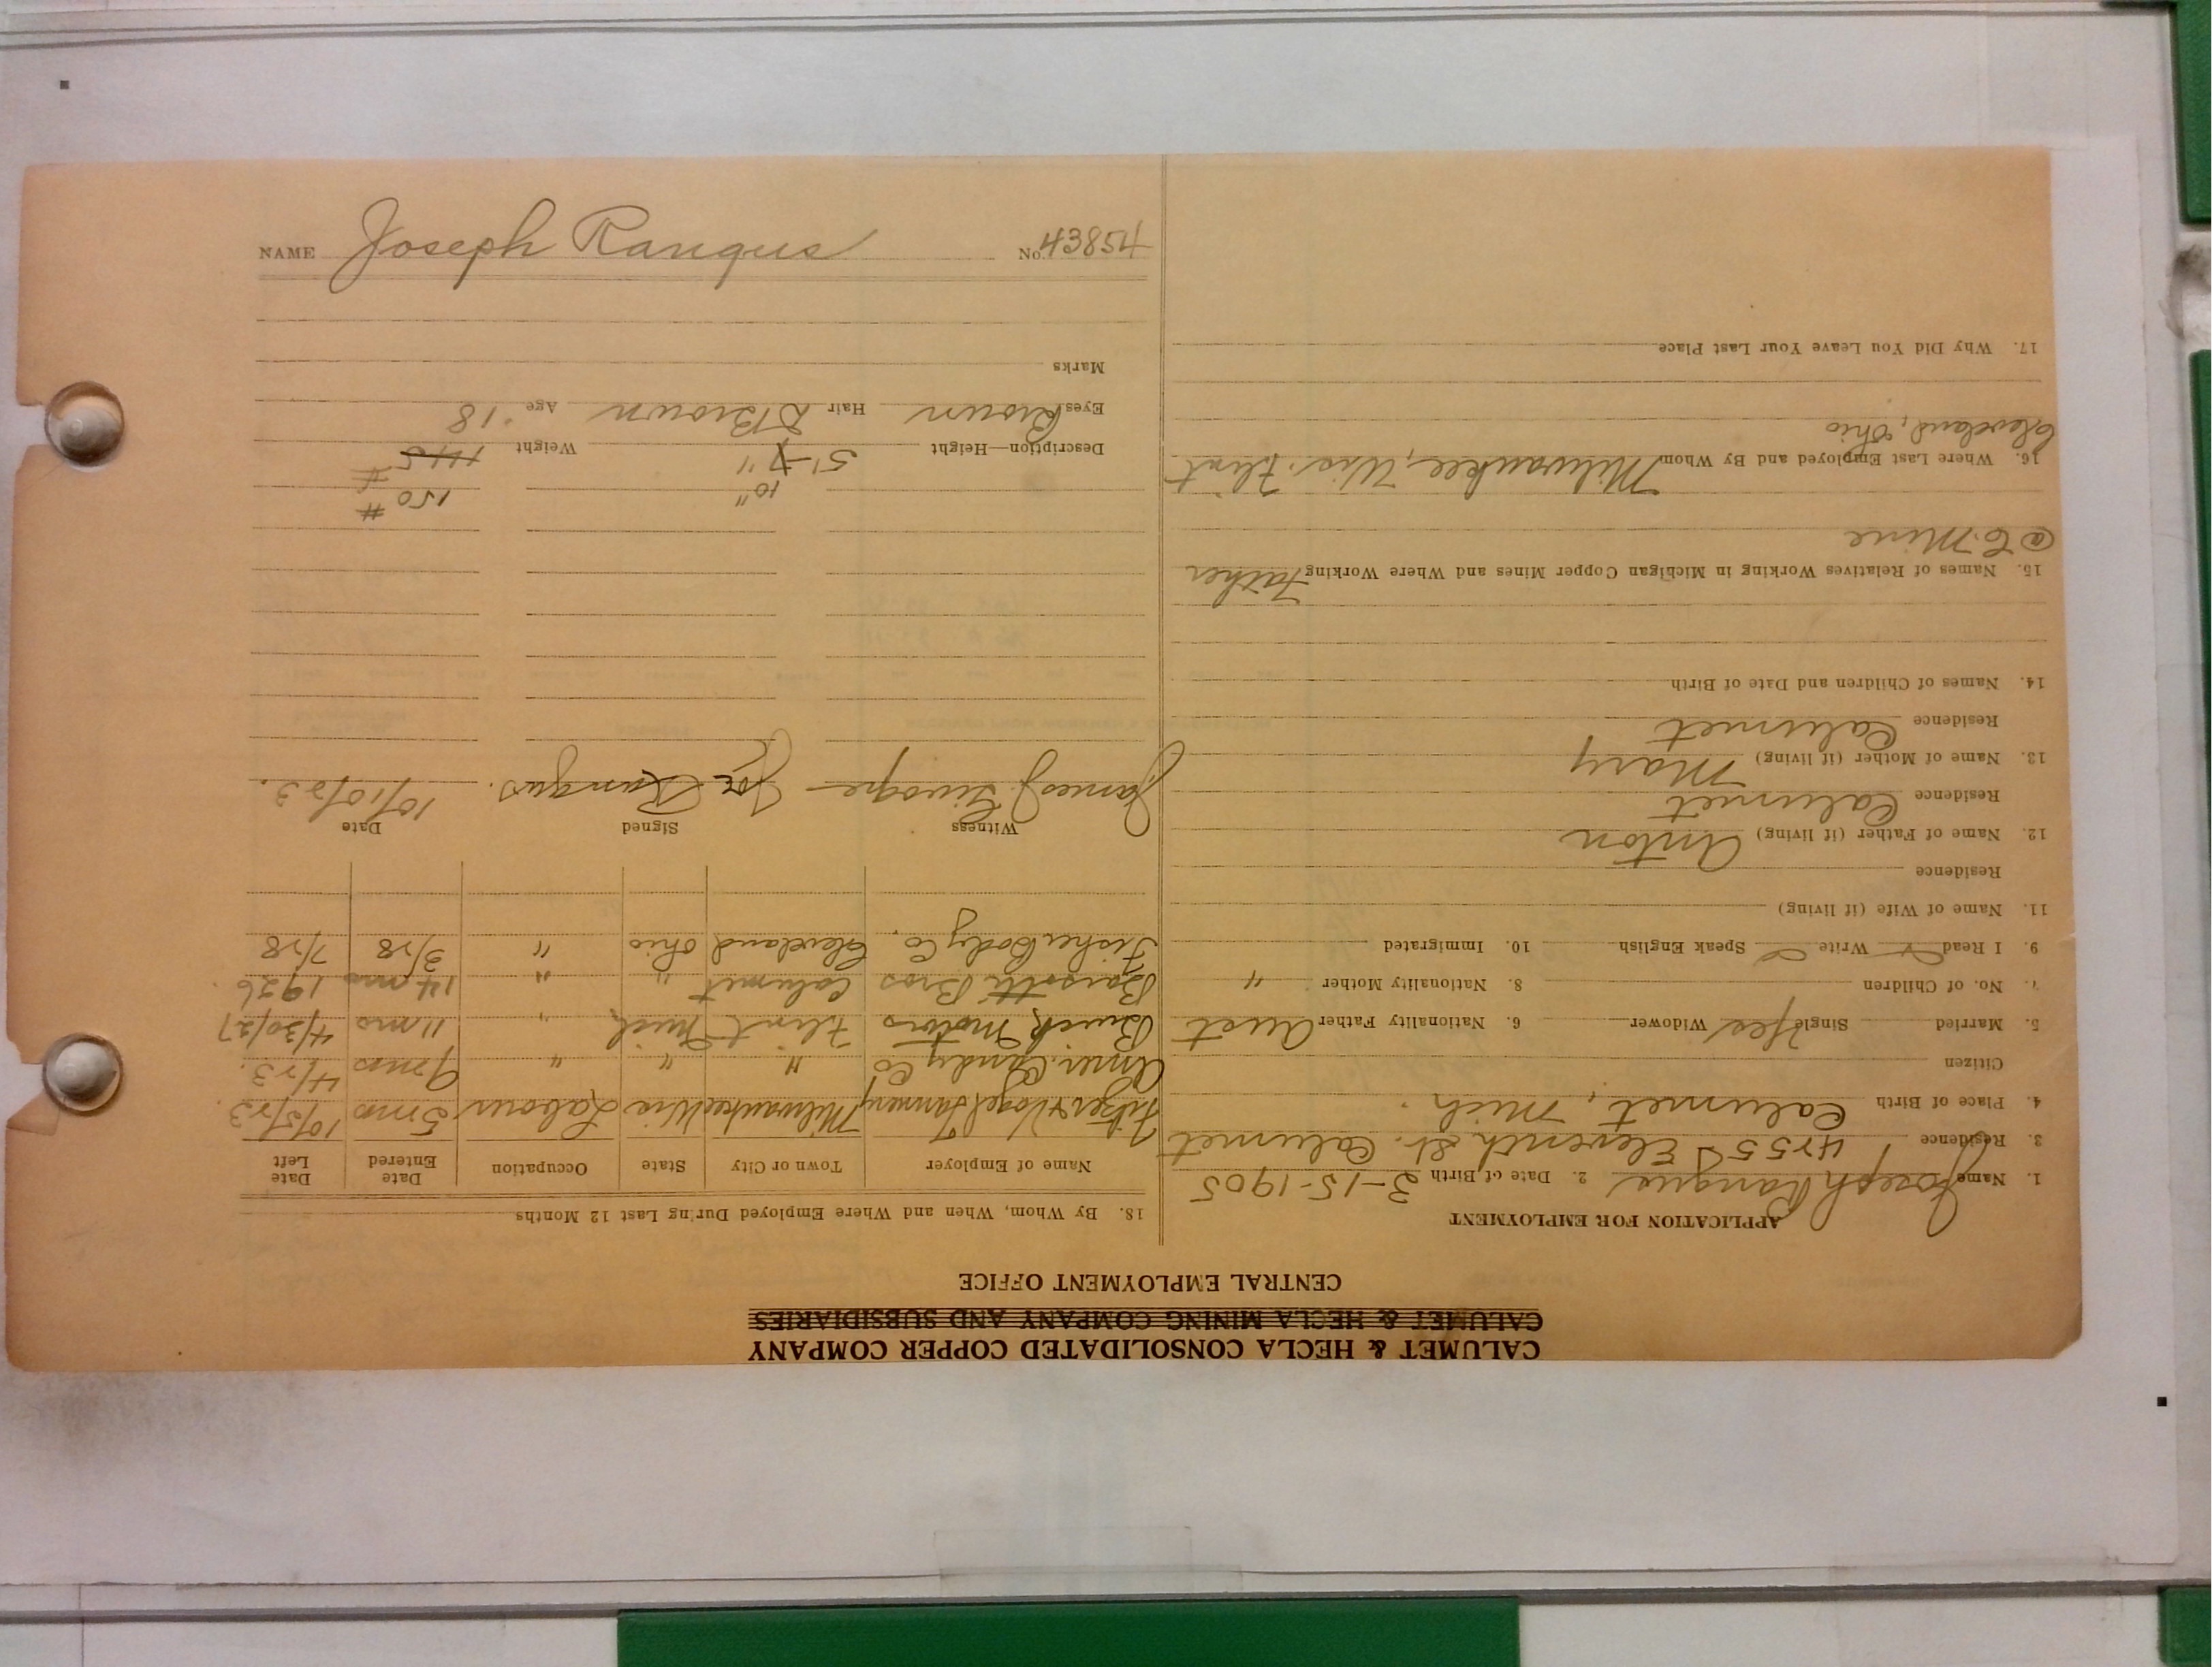 CALUMET & HECLA CONSOLIDATED COPPER COMPANY
CALUMET & HECLA MINING COMPANY AND SUBSIDIARIES
CENTRAL EMPLOYMENT OFFICE
APPLICATION FOR EMPLOYMENT
1. Name Joseph Rangus 2. Date of Birth 3-15-1905
3. Residence 4255 Eleventh St. Calumet
4. Place of Birth Calumet, Mich.
Citizen
5. Married Single Yes Widower 6. Nationality Father Aust
7. No. of Children 8. Nationality Mother "
9. I Read ✓ Write ✓ Speak English ✓ 10. Immigrated
11. Name of Wife (if living)
Residence
12. Name of Father (if living) Anton
Residence Calumet
13. Name of Mother (if living) Mary
Residence Calumet
14. Names of Children and Date of Birth
15. Names of Relatives Working in Michigan Copper Mines and Where Working Father
@ C. Mine
16. Where Last Employed and By Whom Milwaukee, Wis. Flint
Cleveland, Ohio
17. Why Did You Leave Your Last Place
18. By Whom, When and Where Employed During Last 12 Months
Name of Employer Town or City State Occupation Date Entered Date Left
& Vogel Tannery Milwaukee Wis Labour 5 mo 10/5/23.
Amer. Candy Co " " " 9 mos 4/23.
Buick Motors Flint Mich " 11 mos 4/30/27
Barsotti Bros Calumet " " 14 mos 1926.
Fisher Body Co. Cleveland Ohio " 3/28 7/28
Witness Signed Date
James J. Joe Rangus. 10/10/23.
10" 150 #
Description—Height 5'-7" Weight 145 #
Eyes Brown Hair D Brown Age 18
Marks
NAME Joseph Rangus No. 43854